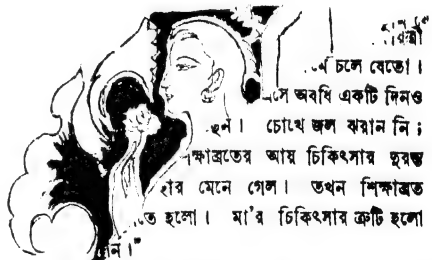 চলে যেতো।
অবধি একটি দিনও
চোখে জল ঝরান নি;
আয় চিকিৎসার দুরন্ত
মেনে গেল। তখন শিক্ষাব্রত
হলো। মা'র চিকিৎসার ত্রুটি হলো